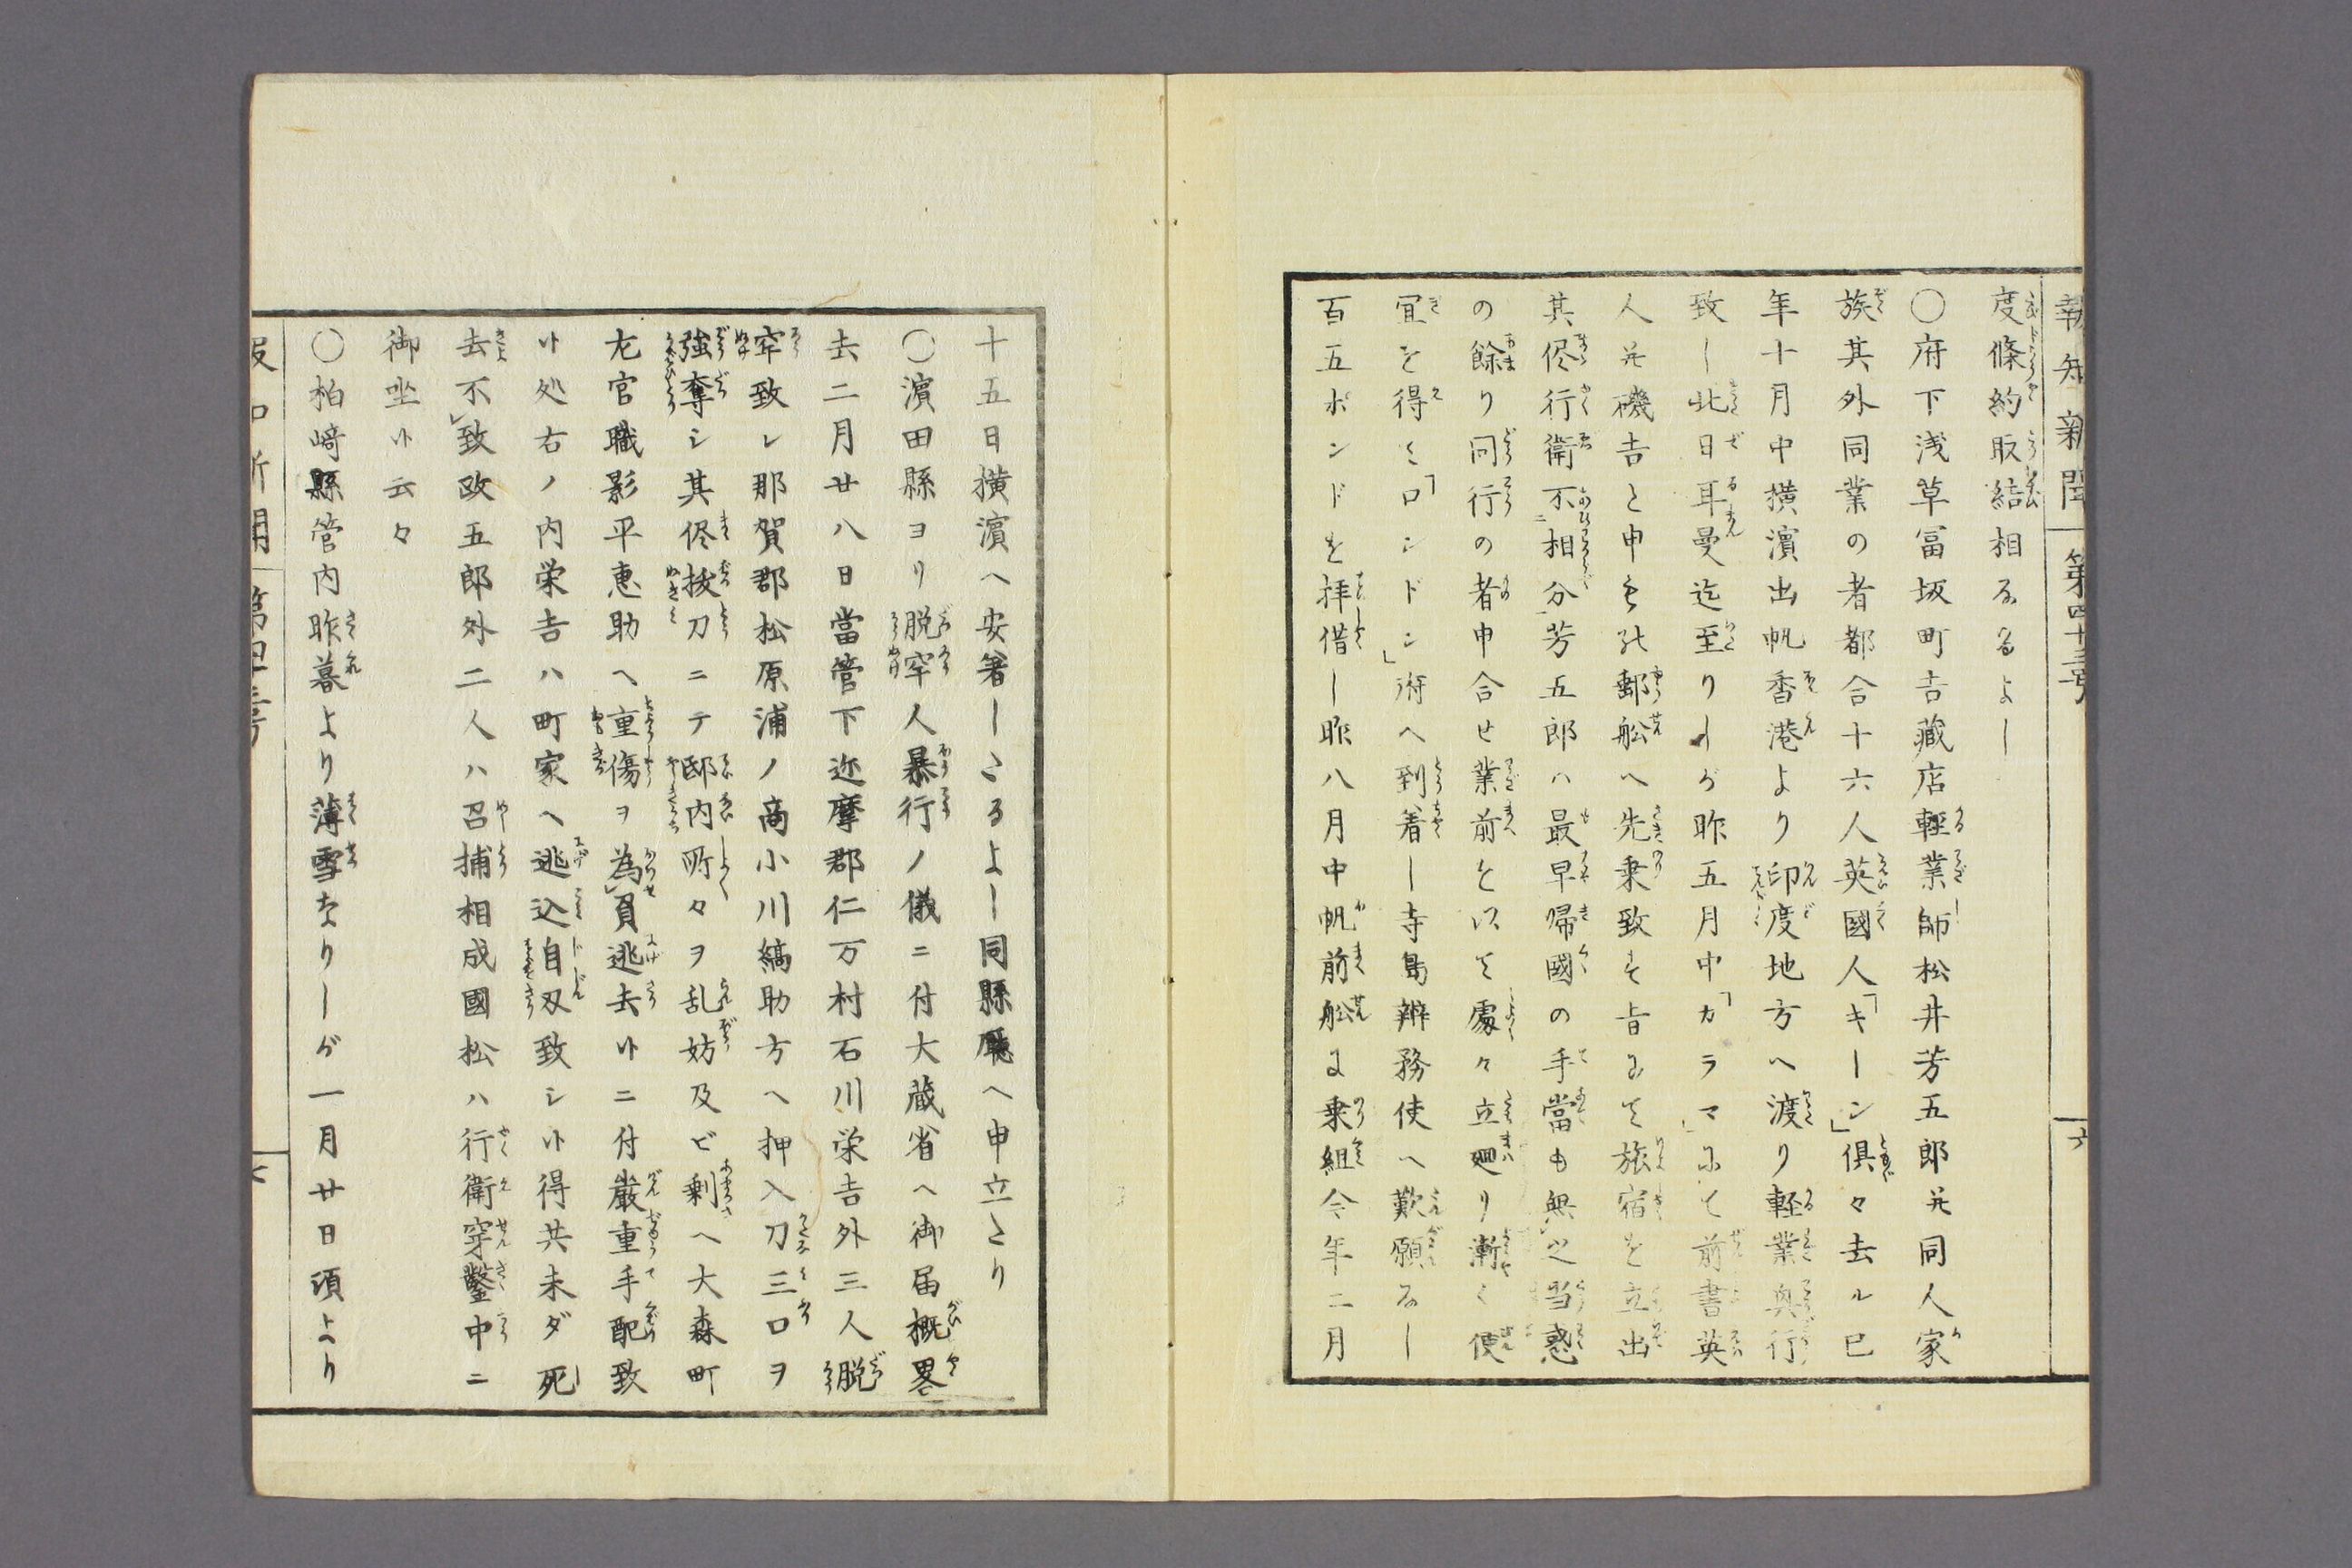 報知新聞 第四十三号 六
度條約取結相なるよし
〇府下浅草冨坂町吉藏店輕業師松井芳五郎并同人家
族其外同業の者都合十六人英國人「キーン」倶々去ル巳
年十月中横濵出帆香港より印度地方へ渡り軽業興行
致し此日耳曼迄至りしが昨五月中「カラマ」にて前書英
人并磯吉と申も郵舩へ先乗致す旨にて旅宿を立出
其侭行衛不相分芳五郎ハ最早帰國の手當も無之当惑
の餘り同行の者申合せ業前を以て處々立廻り漸く便
宜を得て「ロンドン」府へ到着し寺島辨務使へ歎願なし
百五ポンドを拝借し昨八月中帆前舩に乗組今年二月
十五日横濵へ安着したるよし同縣廳へ申立たり
〇濵田縣ヨリ脱牢人暴行ノ儀ニ付大蔵省へ御届概畧
去二月廿八日當管下迩摩郡仁万村石川栄吉外三人脱
牢致シ那賀郡松原浦ノ商小川縞助方へ押入刀三口ヲ
強奪シ其侭抜刀ニテ邸内所々ヲ乱妨及ビ剰へ大森町
元官職影平惠助へ重傷ヲ為負逃去候ニ付厳重手配致
候処右ノ内栄吉ハ町家へ逃込自刃致シ候得共未ダ死
去不致政五郎外二人ハ召捕相成國松ハ行衛穿鑿中ニ
御坐候云々
〇柏﨑縣管内昨暮より薄雪なりしが一月廿日頃より